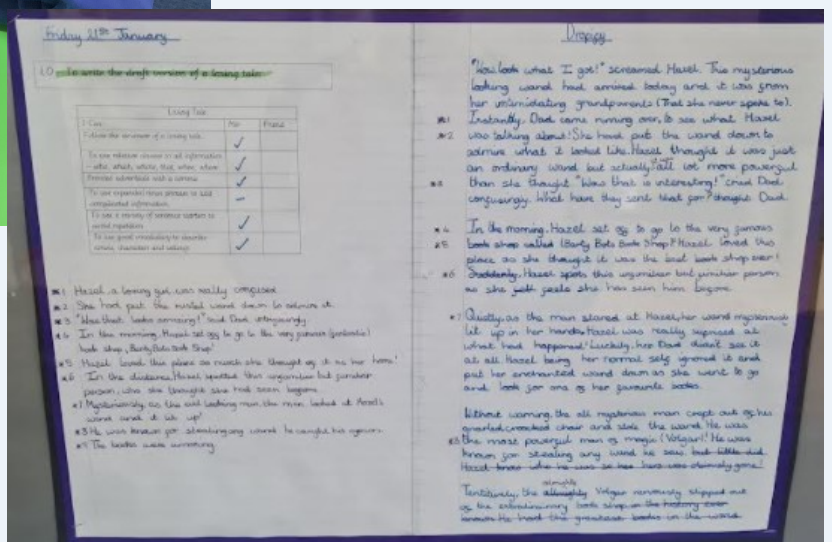 Friday 21st January
LO To write the draft version of a losing tale
Losing Tale
I Can... Me
Follow the structure of a losing tale.
To use relative clauses to add information
– who, which, where, that, when, whose
Fronted adverbials with a comma
To use expanded noun phrases to add
complicated information.
To use a variety of sentence starters to
avoid repetition
To use great vocabulary to describe
setting, characters and
*1 Hazel a loving girl, was really confused
*2 She had put the wand down to admire it
*3 "Wow that looks amazing!" said Dad
*4 In the morning, Hazel set off to go to the very famous
book shop, Barty Bots Book Shop!
*5 Hazel loved this place so much she thought of it as her home!
*6 In the distance, Hazel spotted this unfamiliar but familiar
person, who she thought she had seen before
*7 Mysteriously, as the old looking man, the man looked at Hazel's
wand and it lit up!
*8 He was known for stealing any wand he caught his eyes on
*9 The books were amazing
"Wow look what I got!" screamed Hazel. This mysterious
looking wand had arrived today and it was from
her intimidating grandparents (That she never spoke to).
*1 Instantly, Dad came running over, to see what Hazel
*2 was talking about! She had put the wand down to
admire what it looked like. Hazel thought it was just
an ordinary wand but actually, a lot more powerful
*3 than she thought "Wow that is interesting!" cried Dad
confusingly. What have they sent that for? thought Dad.
*4 In the morning, Hazel set off to go to the very famous
*5 book shop called (Barty Bots Book Shop)! Hazel loved this
place as she thought it was the best book shop ever!
*6 Suddenly, Hazel spots this unfamiliar but familiar person
as she feels she has seen him before
*7 Quietly, as the man stared at Hazel, her wand mysteriously
lit up in her hands. Hazel was really suprised at
what had happened! Luckily, her Dad didn't see it
at all Hazel being her normal self ignored it and
put her enchanted wand down as she went to go
and look for one of her favourite books.
Without warning, the all mysterious man crept out of his
gnarled, crooked chair and stole the wand. He was
*8 the most powerful man of magic (Volgar)! He was
known for stealing any wand he saw, but little did
Hazel know who he was so her hero was obviously gone!
almighty
Tentitively, the Volgar nervously slipped out
of the extraordinary book shop in the history ever
known He had the greatest books in the